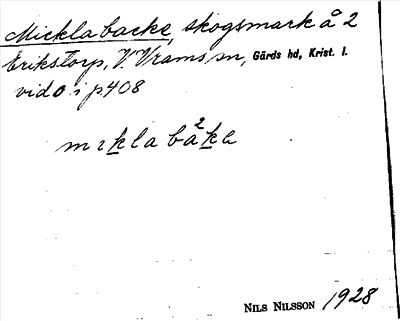 Mickla backe, skogsmark å 2
Erikstorp, V. Vrams sn, Gärds hd, Krist. l.
vid o i p. 408
mıkla ba²kə
NILS NILSSON 1928